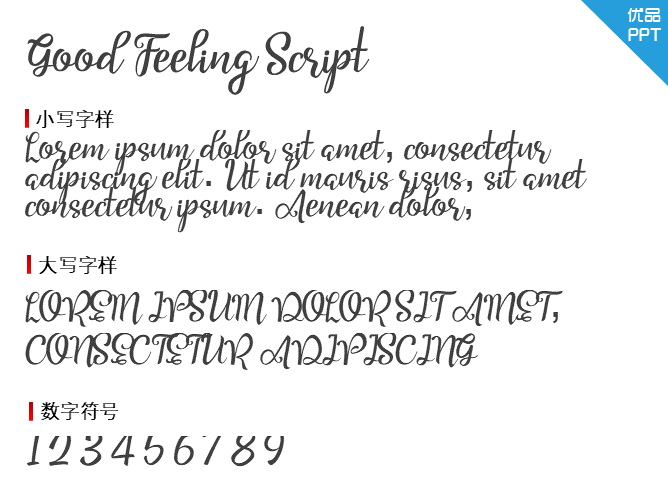 优品
PPT
Good Feeling Script
小写字样
Lorem ipsum dolor sit amet, consectetur
adipiscing elit. Ut id mauris risus, sit amet
consectetur ipsum. Aenean dolor,
大写字样
LOREM IPSUM DOLOR SIT AMET,
CONSECTETUR ADIPISCING
数字符号
123456789